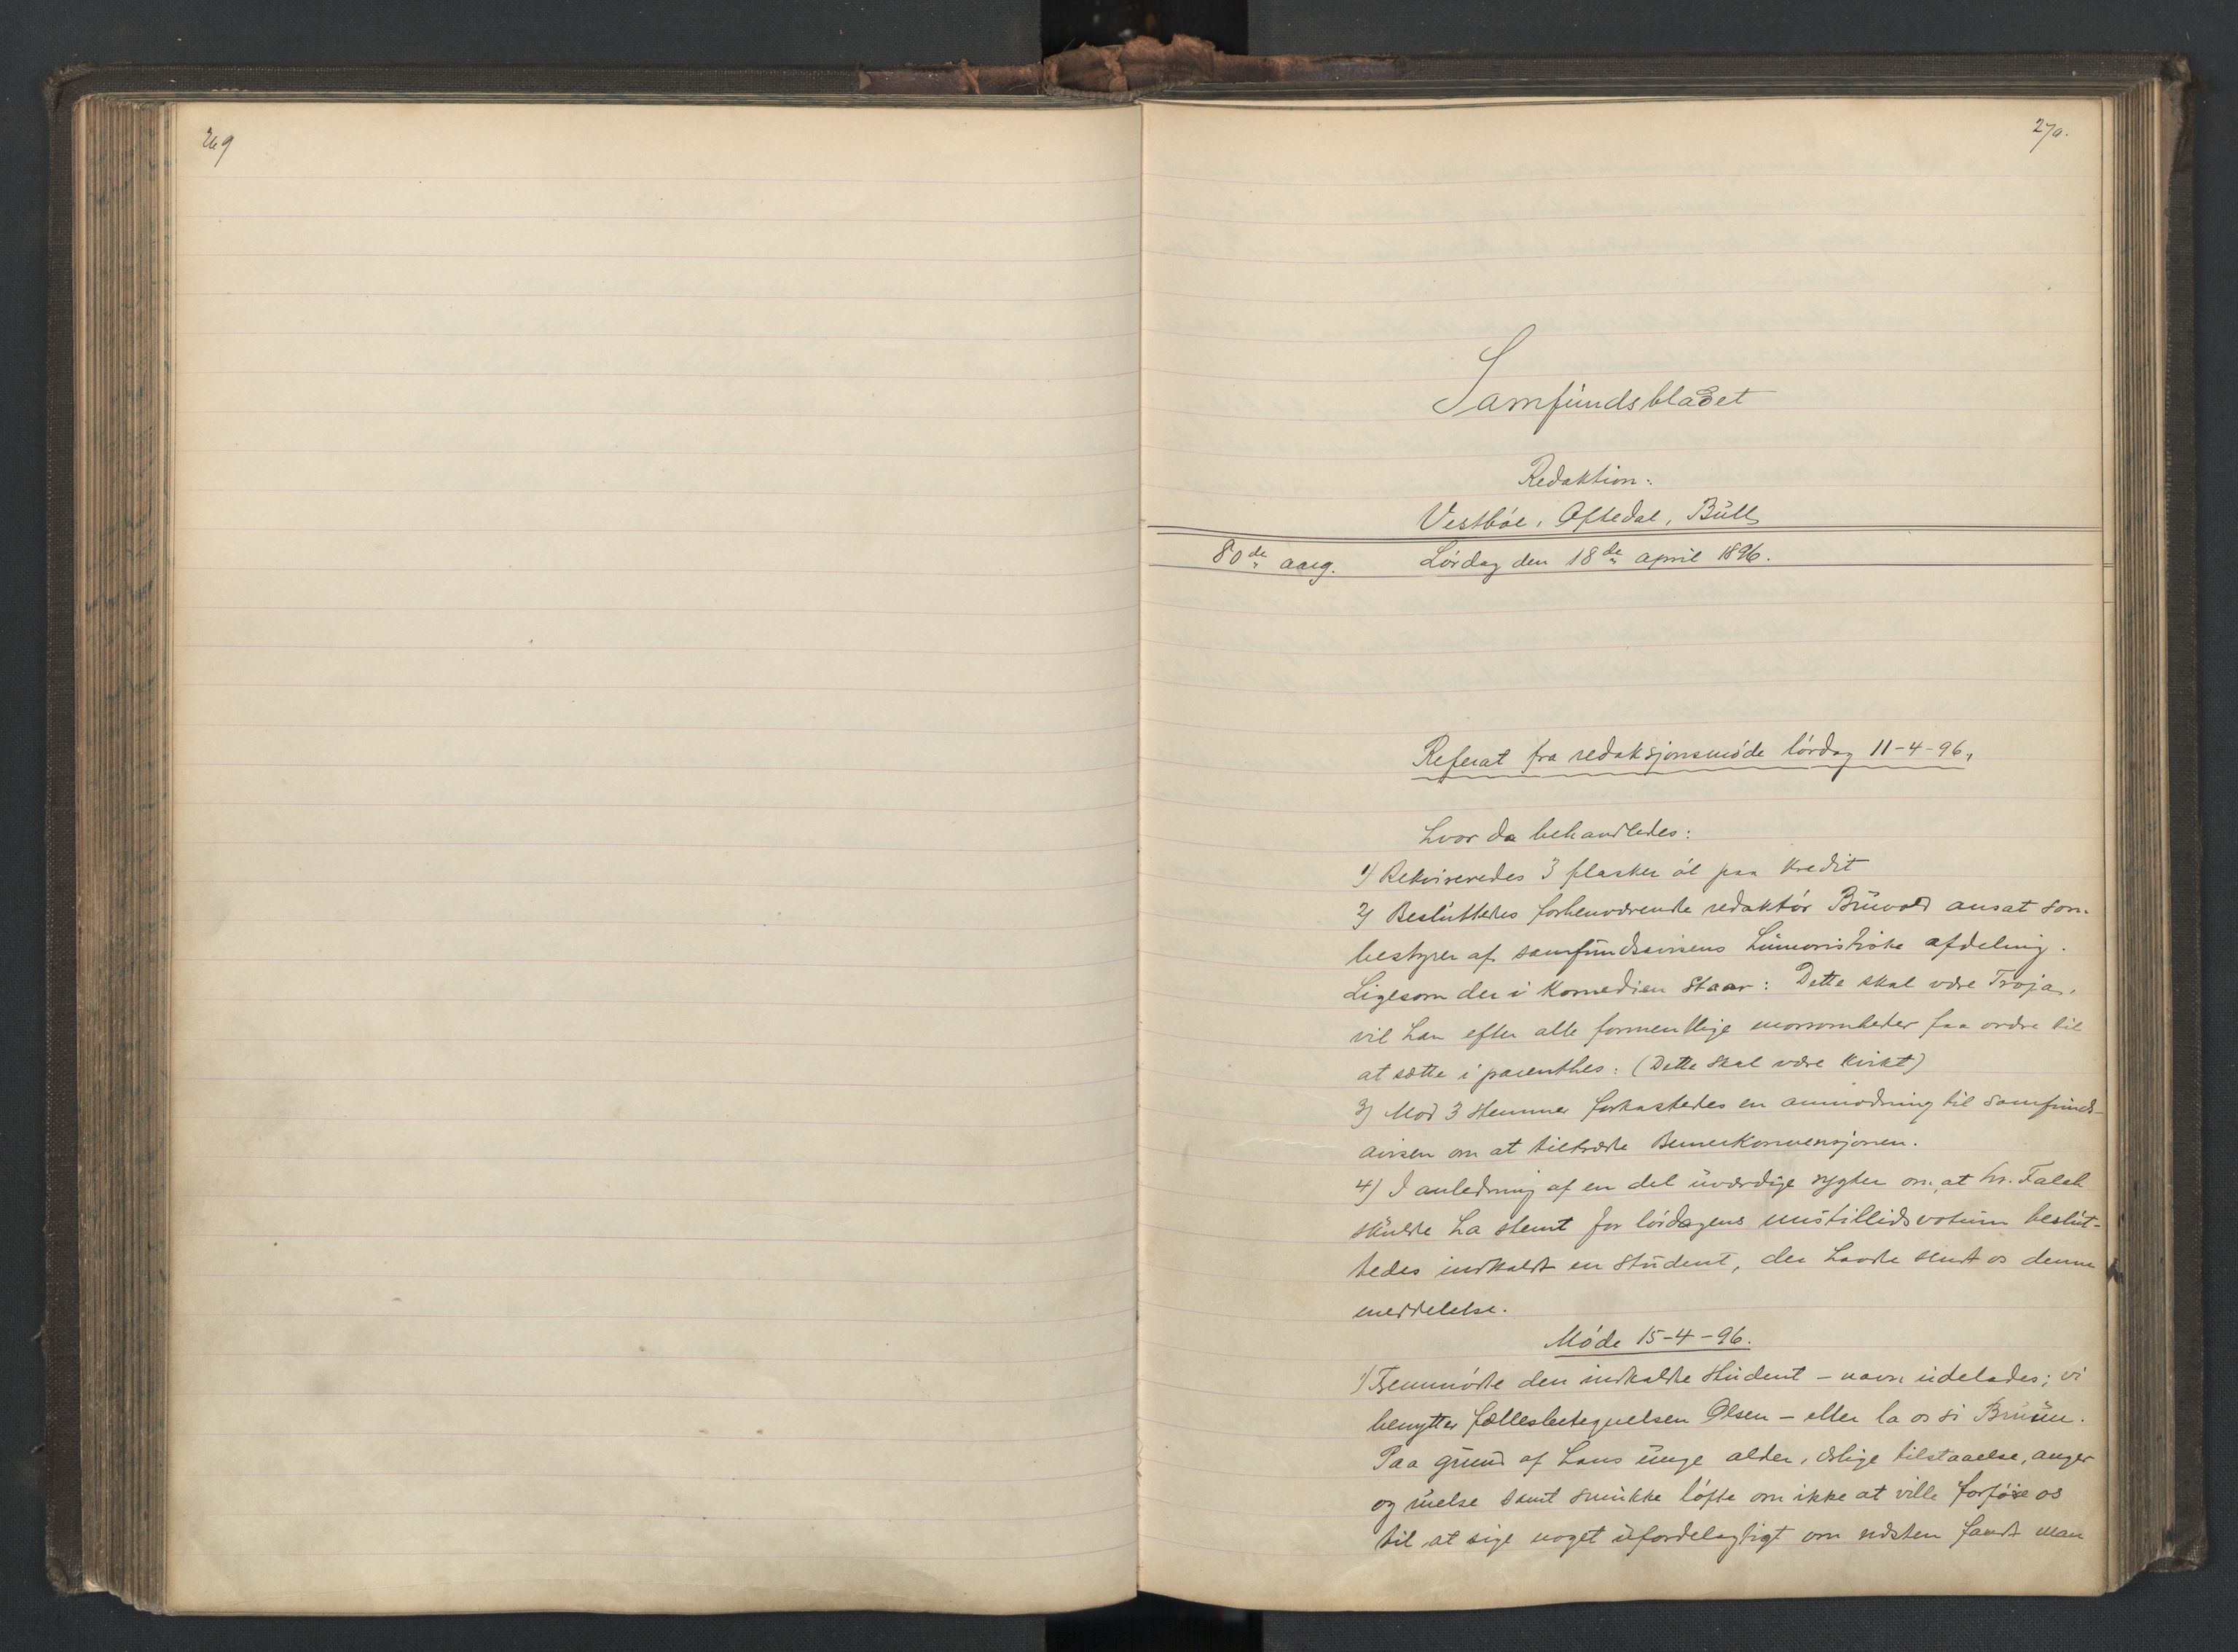 269
270.
Samfundsbladet
Redaktion:
Vestbøe, Oftedal, Bull
80de aarg. Lördag den 18de april 1896.
Referat fra redaksjonsmöde lördag 11-4-96,
hvor da behandledes:
1) Rekvireredes 3 flasker öl paa kredit
2) Besluttedes forhenværende redaktör Buvold ansat som
bestyrer af samfundsavisens humoristiske afdeling.
Ligesom der i Komedien staar: Dette skal være Troja,
vil han efter alle formentlige morsomheder faa ordre til
at sætte i parenthes: (Dette skal være kvikt)
3) Mod 3 stemmer forkastedes en anmodning til samfunds-
avisen om at tiltræde Bernerkonvensjonen.
4) I anledning af en del uværdige rygter om at hr. Falch
skulde ha stemt for lördagens mistillidsvotum beslut-
tedes indkaldt en student, der havde sendt os denne
meddelelse.
Möde 15-4-96.
1) Fremmödte den indkaldte student – navn udelades; vi
benytter fællesbetegnelsen Olsen – eller la os si Bruun.
Paa grund af hans unge alder, ærlige tilstaaelse, anger
og ruelse samt smukke löfte om ikke at ville forföre os
til at sige noget ufordelagtigt om næsten fandt man